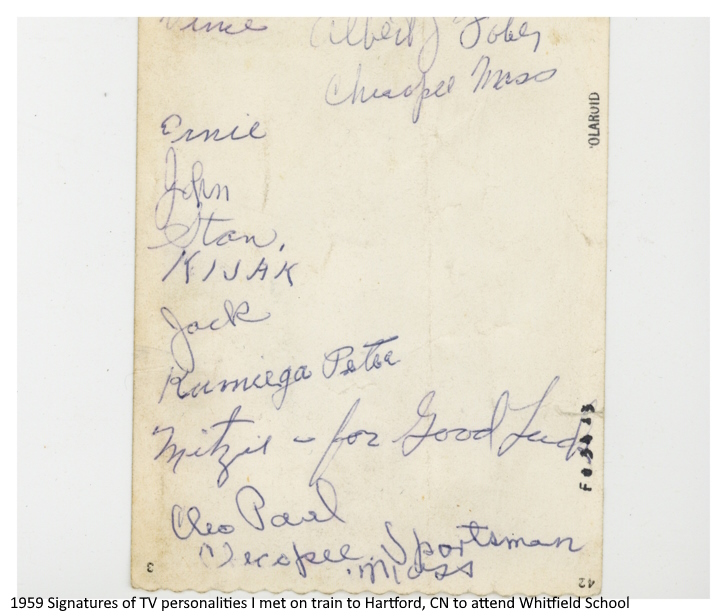 Vince Albert J Tobey
Chicopee Mass
POLAROID
Ernie
John
Stan,
KIJAK
Jack
Kumiega Peter
Mitzie - for Good Luck
Cleo Paul
Chicopee Sportsman
Mass
3
42
1959 Signatures of TV personalities I met on train to Hartford, CN to attend Whitfield School